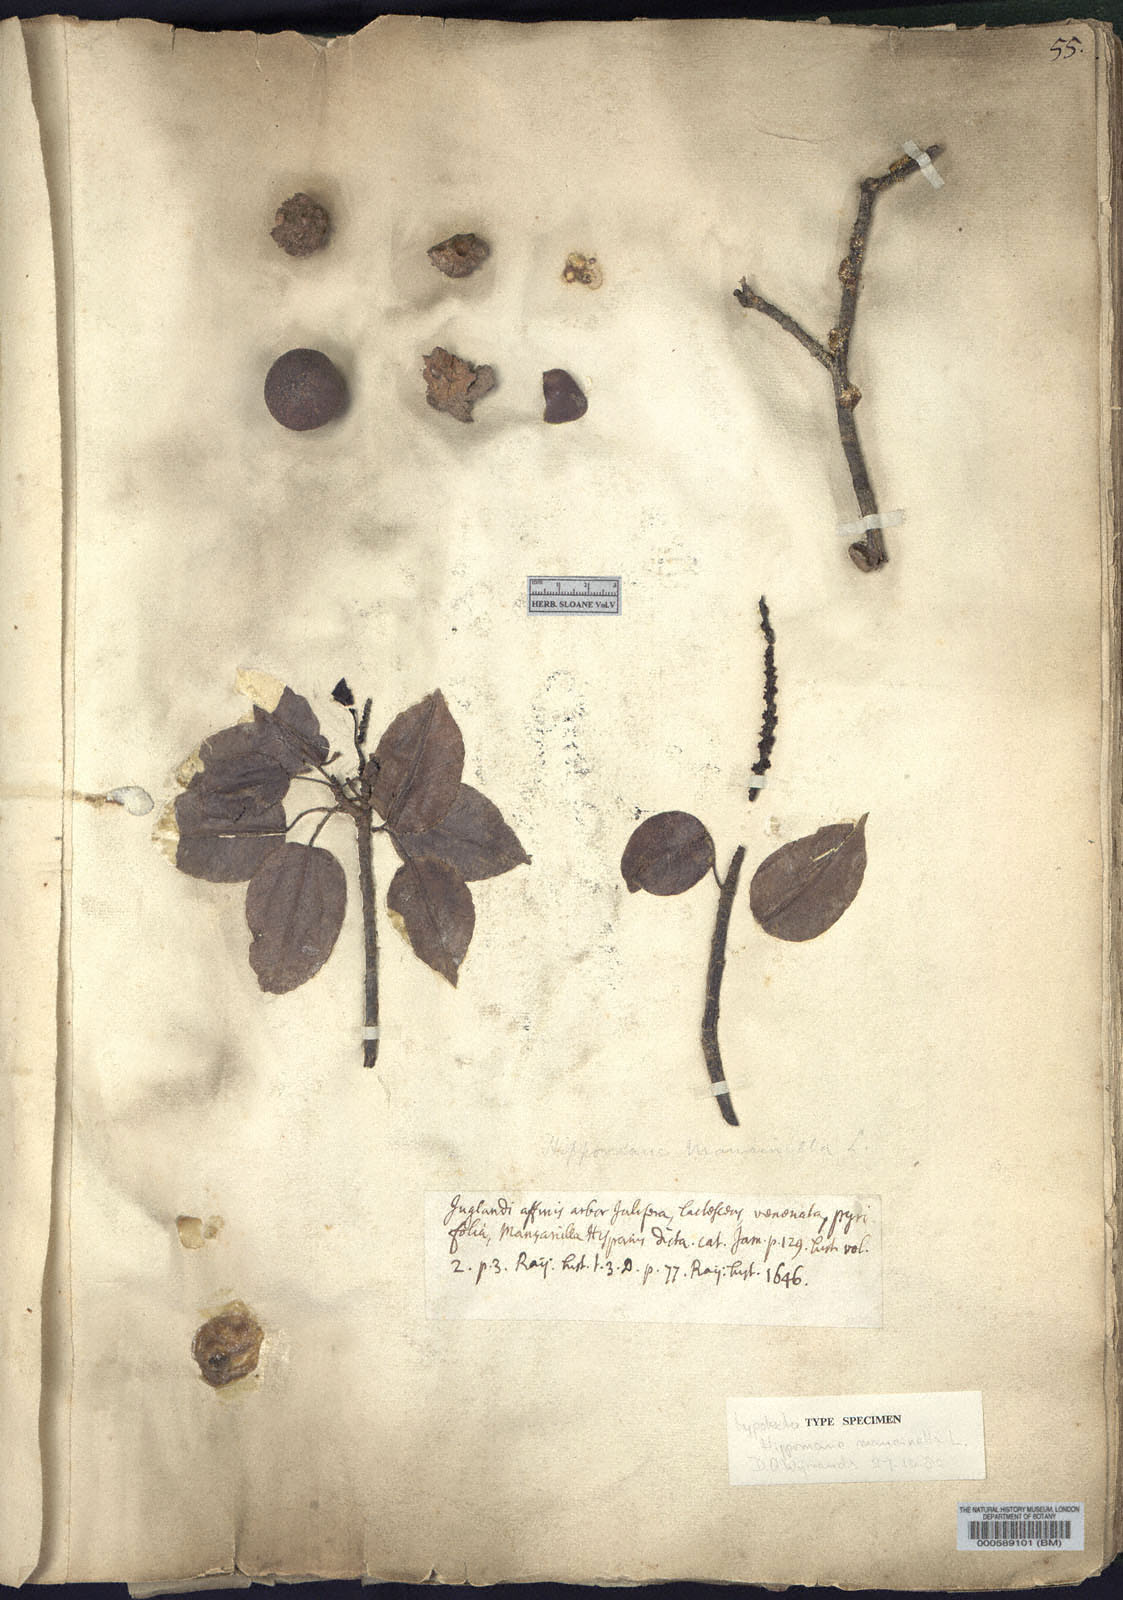 55.
HERB. SLOANE Vol.V
Hippomane Mancinella L.
Juglandi affinis arbor Julifera, lactescens venenata, pyri
folia, Manzanilla Hispanis dicta. cat. Jam. p. 129. hist. vol.
2. p. 3. Raij. hist. t. 3. D. p. 77. Raij. hist. 1646.
TYPE SPECIMEN
Hippomane mancinella L.
THE NATURAL HISTORY MUSEUM, LONDON
DEPARTMENT OF BOTANY
000589101 (BM)